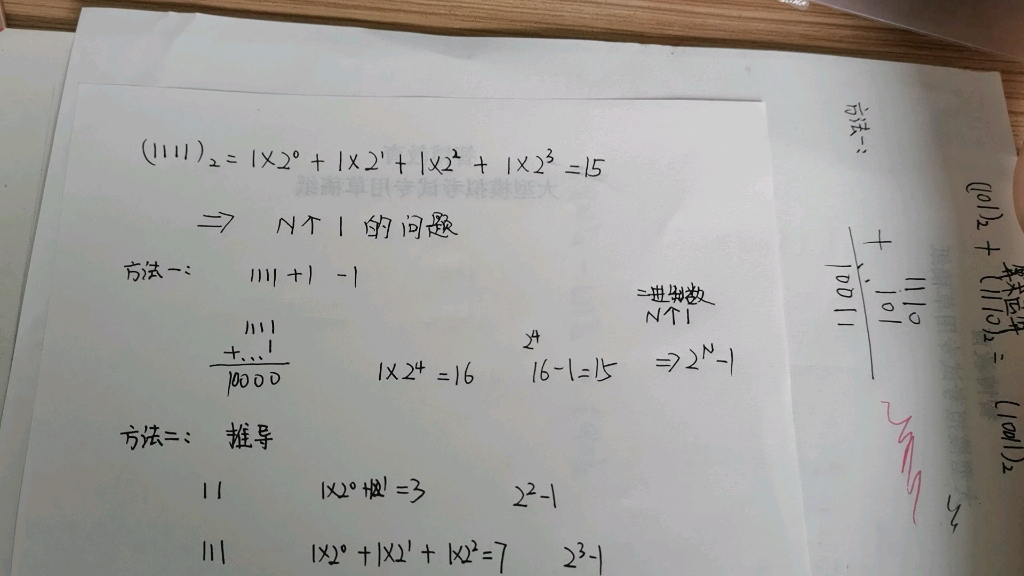 (1111)₂ = 1×2⁰ + 1×2¹ + 1×2² + 1×2³ = 15
⇒ N个1的问题
方法一: 1111 + 1 - 1
1111
+...1
10000
1×2⁴ = 16
2⁴
16 - 1 = 15
二进制数
N个1
⇒ 2ᴺ - 1
方法二: 推导
11 1×2⁰ + 1×2¹ = 3 2² - 1
111 1×2⁰ + 1×2¹ + 1×2² = 7 2³ - 1
(101)₂ + (1110)₂ = (10011)₂
方法一:
1110
101
+
10011